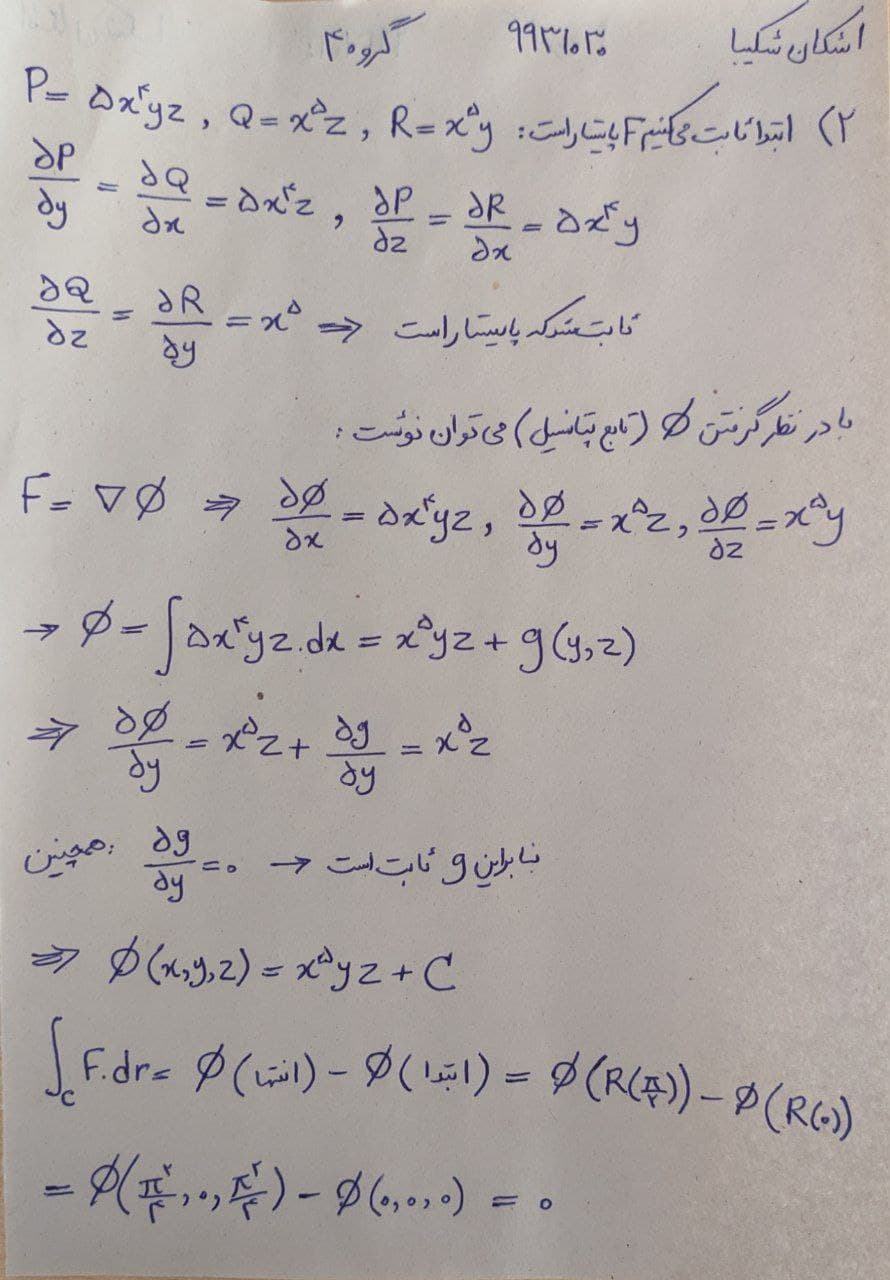 اشکان شکیبا ۹۹۳۱۰۳۰ گروه ۴
۲) ابتدا ثابت می‌کنیم F پایستار است: P = ۵x⁴yz , Q = x⁵z , R = x⁵y
∂P/∂y = ∂Q/∂x = ۵x⁴z , ∂P/∂z = ∂R/∂x = ۵x⁴y
∂Q/∂z = ∂R/∂y = x⁵ ⇒ ثابت شد که پایستار است
با در نظر گرفتن Ø (تابع پتانسیل) می‌توان نوشت :
F = ∇Ø ⇒ ∂Ø/∂x = ۵x⁴yz , ∂Ø/∂y = x⁵z , ∂Ø/∂z = x⁵y
→ Ø = ∫ ۵x⁴yz.dx = x⁵yz + g(y,z)
⇒ ∂Ø/∂y = x⁵z + ∂g/∂y = x⁵z
همچنین: ∂g/∂y = ۰ → بنابراین g ثابت است
⇒ Ø(x,y,z) = x⁵yz + C
∫_c F.dr = Ø(انتها) - Ø(ابتدا) = Ø(R(π/۲)) - Ø(R(۰))
= Ø(π²/۴, ۰, π²/۴) - Ø(۰,۰,۰) = ۰